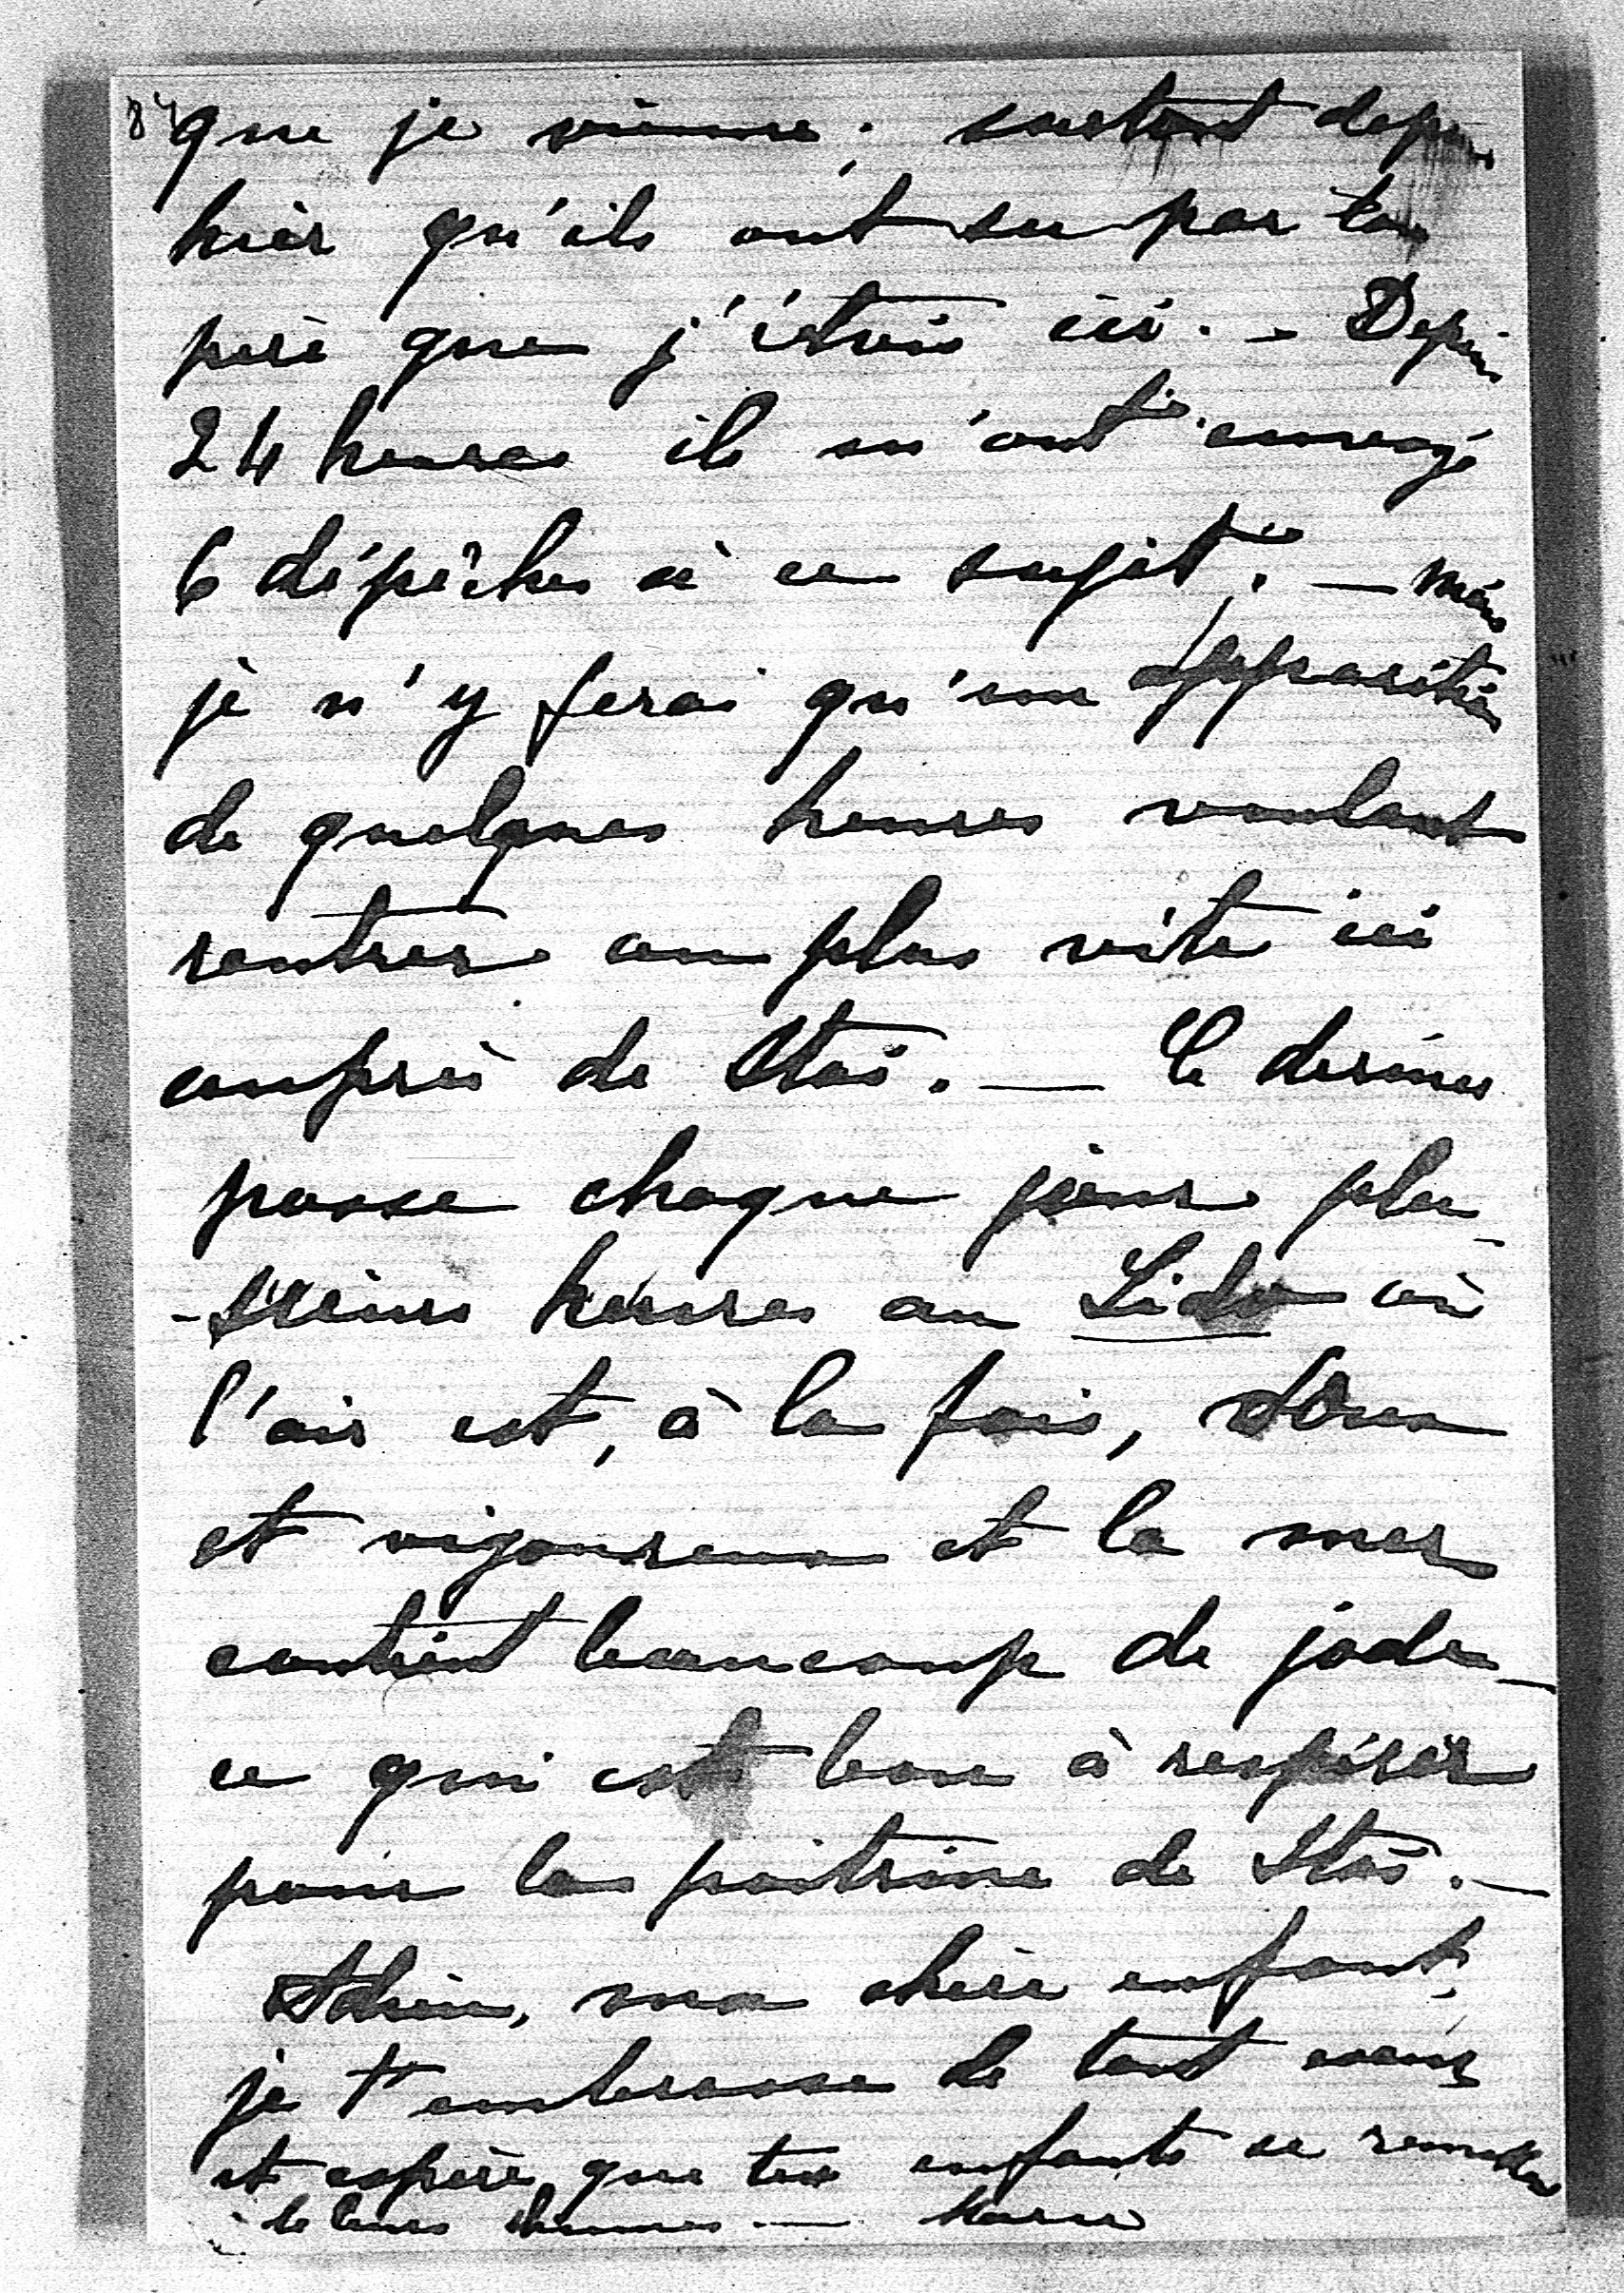 84
que je vienne; surtout depuis
hier qu'ils ont su par ton
père que j'étais ici. - Depuis
24 heures ils m'ont envoyé
6 dépêches à ce sujet. — Mais
je n'y ferai qu'une apparition
de quelques heures voulant
rentrer au plus vite ici
auprès de Staś. — Ce dernier
passe chaque jour plu-
-sieurs heures au Lido où
l'air est, à la fois, doux
et vigoureux et la mer
contient beaucoup de jode —
ce qui est bon à respirer
pour la poitrine de Staś. —
Adieu, ma chère enfant,
je t'embrasse de tout cœur
et espère que tes enfants se remettent
de leurs rhumes. —